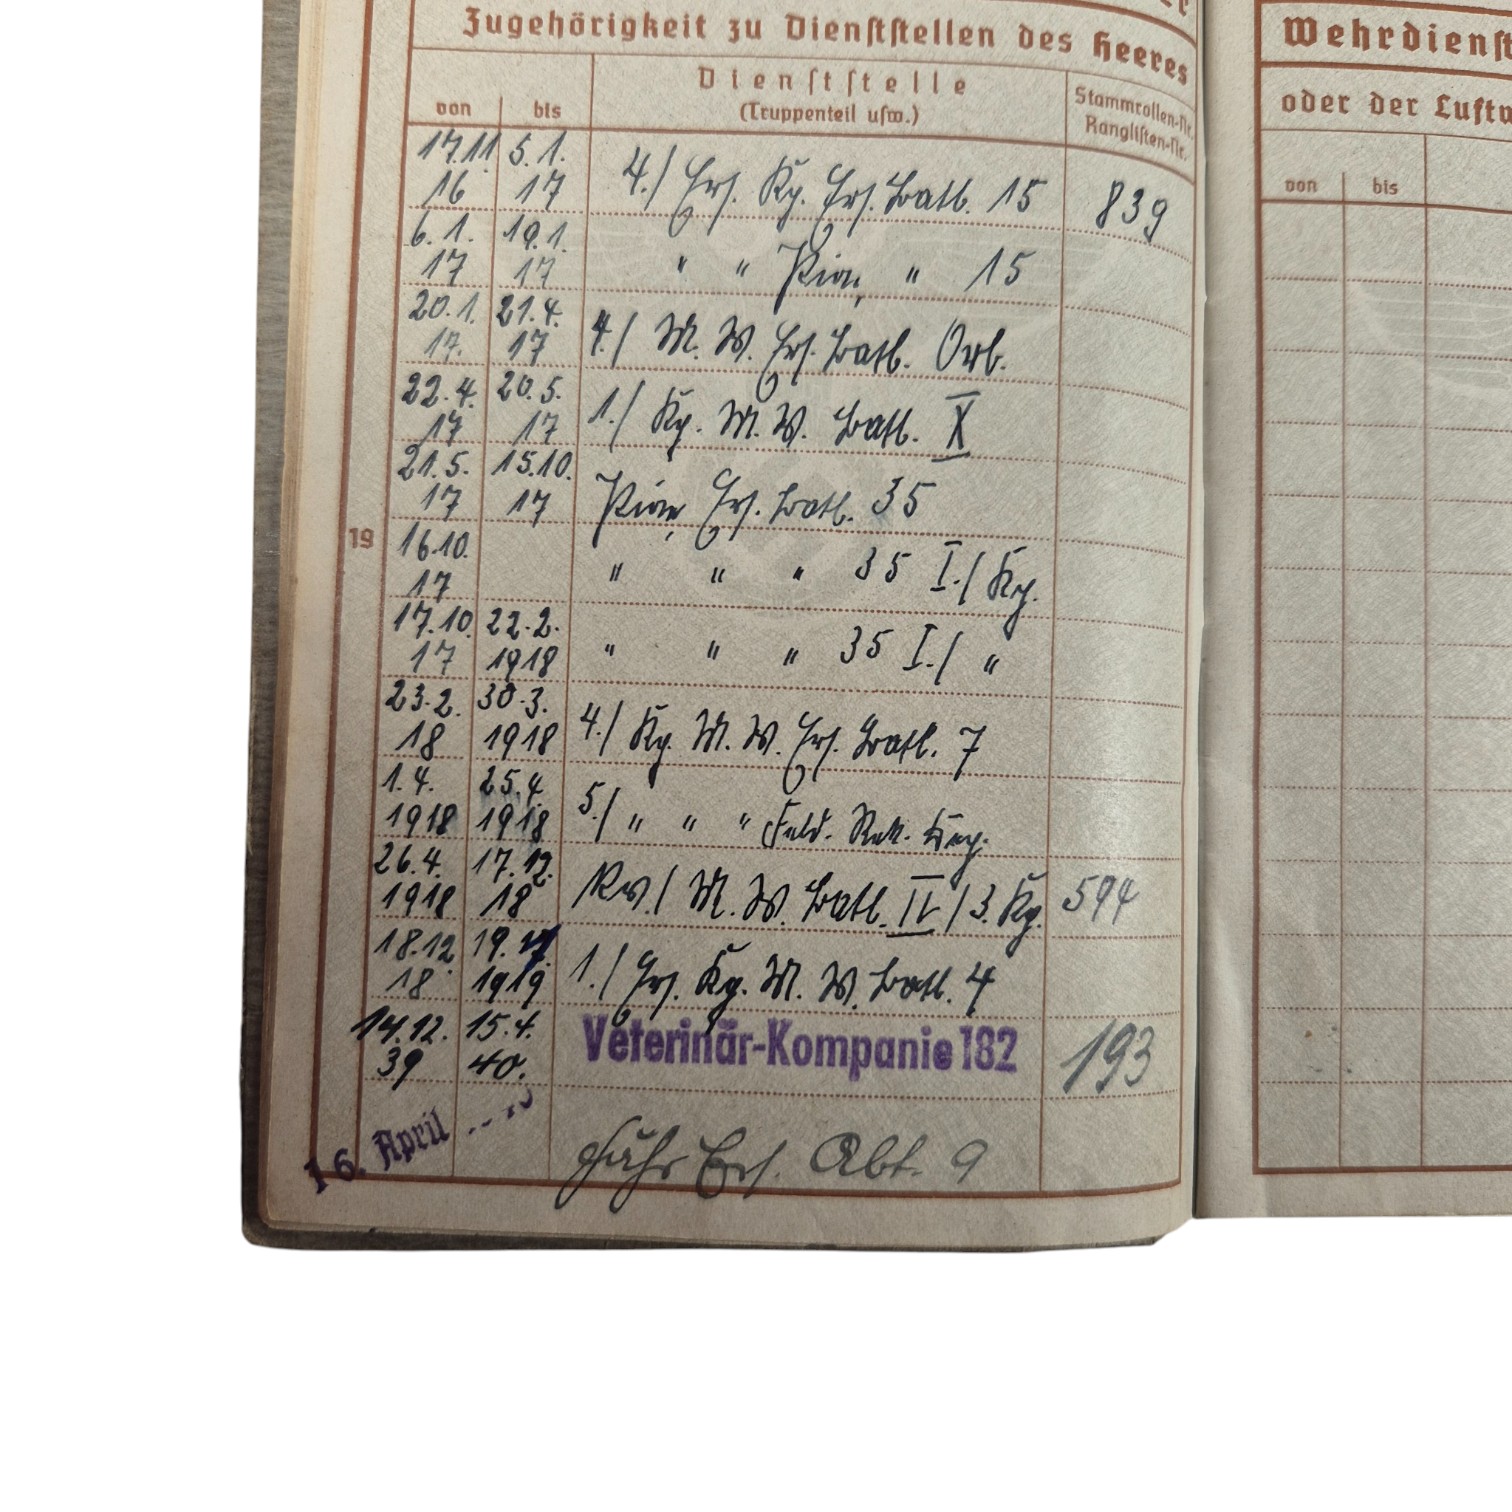 Zugehörigkeit zu Dienststellen des Heeres
von bis Dienststelle
(Truppenteil usw.) Stammrollen-Nr.
Ranglisten-Nr.
17.11. 5.1.
16 17 4./ Ers. Kp. Ers. Batl. 15 839
6.1. 19.1.
17 17 " " Pion. " 15
20.1. 21.4.
17. 17 4./ M. W. Ers. Batl. Orb.
22.4. 20.5.
17 17 1./ Kp. M. W. Batl. X
21.5. 15.10.
17 17 Pion. Ers. Batl. 35
19
16.10.
17 " " " 35 I./ Kp.
17.10. 22.2.
17 1918 " " " 35 I./ "
23.2. 30.3.
18 1918 4./ Kp. M. W. Ers. Batl. 7
1.4. 25.4.
1918 1918 5./ " " " Feld. Rek.
26.4. 17.12.
1918 18 M. W. Batl. II / 3. Kp. 594
18.12. 19.
18 1919 1./ Ers. Kp. M. W. Batl. 4
14.12. 15.4.
39 40. Veterinär-Kompanie 182 193
16. April Ers. Abt. 9
Wehrdienst
oder der Lufts
von bis